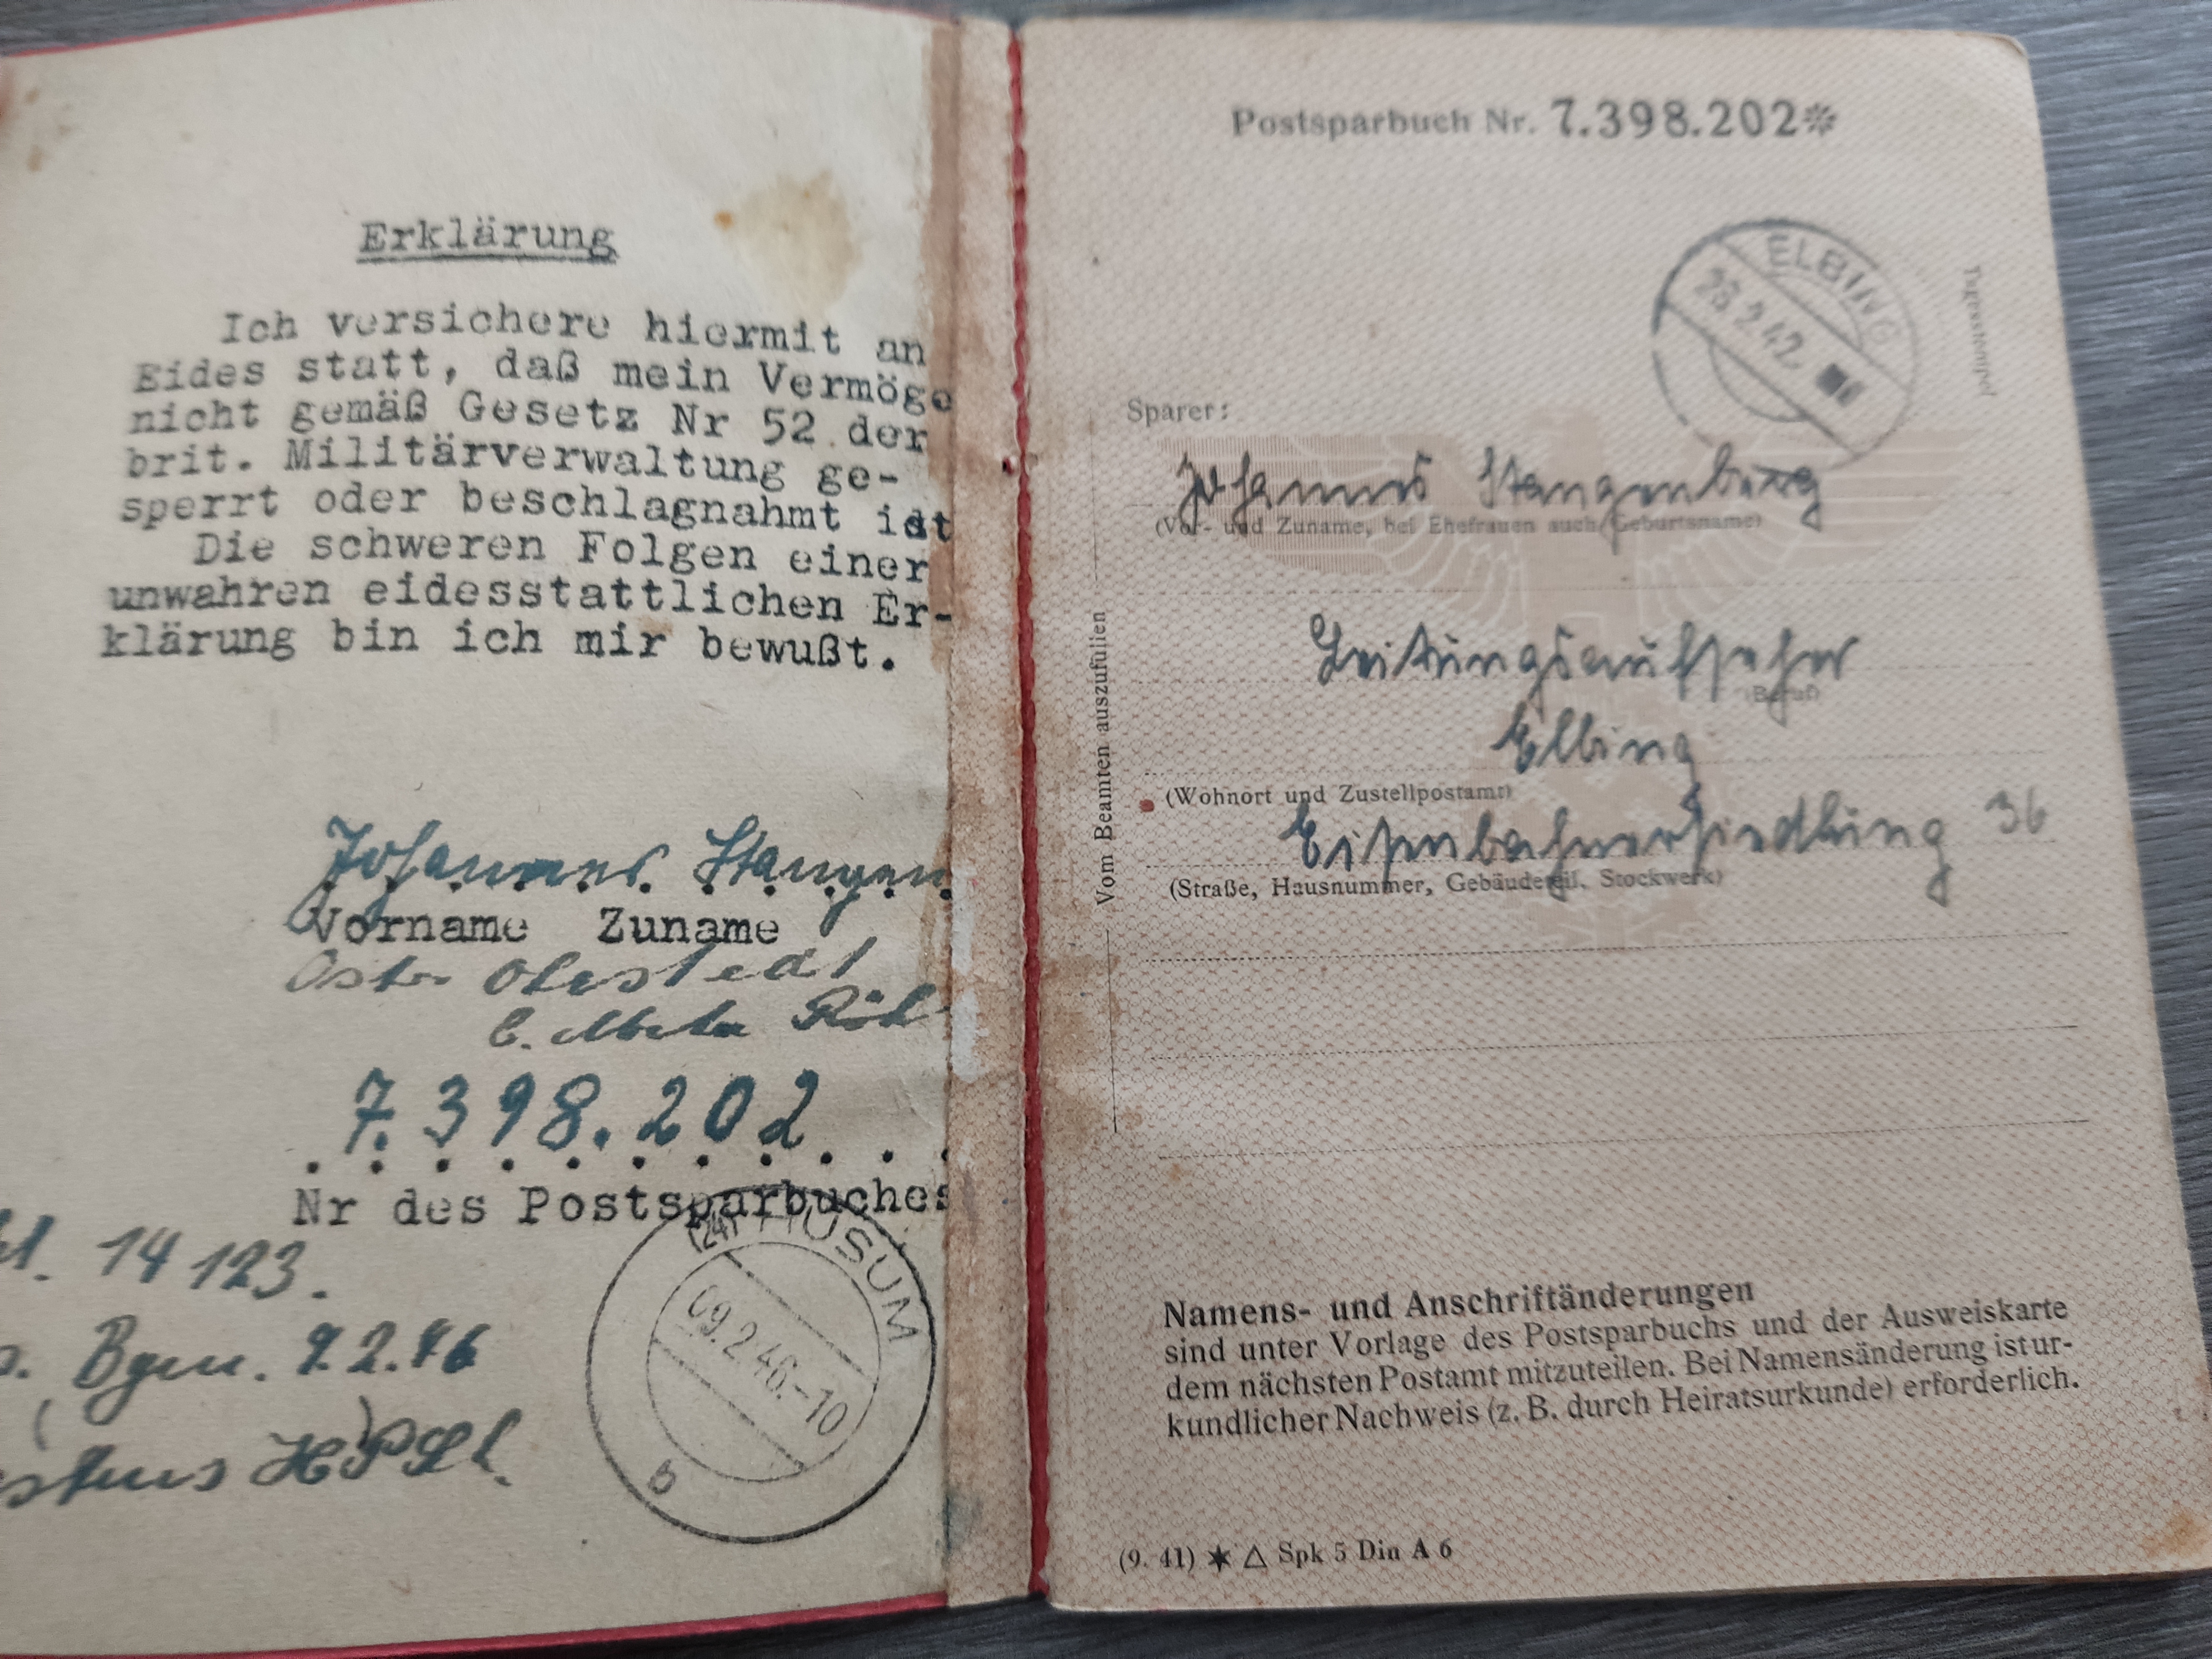 Erklärung
Ich versichere hiermit an
Eides statt, daß mein Vermöge
nicht gemäß Gesetz Nr 52 der
brit. Militärverwaltung ge-
sperrt oder beschlagnahmt ist
Die schweren Folgen einer
unwahren eidesstattlichen Er-
klärung bin ich mir bewußt.
Johannes Stangen
Vorname Zuname
Oster Ohrstedt
b. Meta
7.398.202
Nr des Postsparbuches
(24) HUSUM
09.2.46.-10
b
14 123.
Bgm. 9.2.46
Postsparbuch Nr. 7.398.202*
ELBING
23.2.42.
Tagesstempel
Sparer:
Johannes Stangenberg
(Vor- und Zuname, bei Ehefrauen auch Geburtsname)
Leitungsaufseher
(Beruf)
Elbing
(Wohnort und Zustellpostamt)
Eisenbahnersiedlung 36
(Straße, Hausnummer, Gebäudeteil, Stockwerk)
Vom Beamten auszufüllen
Namens- und Anschriftänderungen
sind unter Vorlage des Postsparbuchs und der Ausweiskarte
dem nächsten Postamt mitzuteilen. Bei Namensänderung ist ur-
kundlicher Nachweis (z. B. durch Heiratsurkunde) erforderlich.
(9. 41) ✶ △ Spk 5 Din A 6